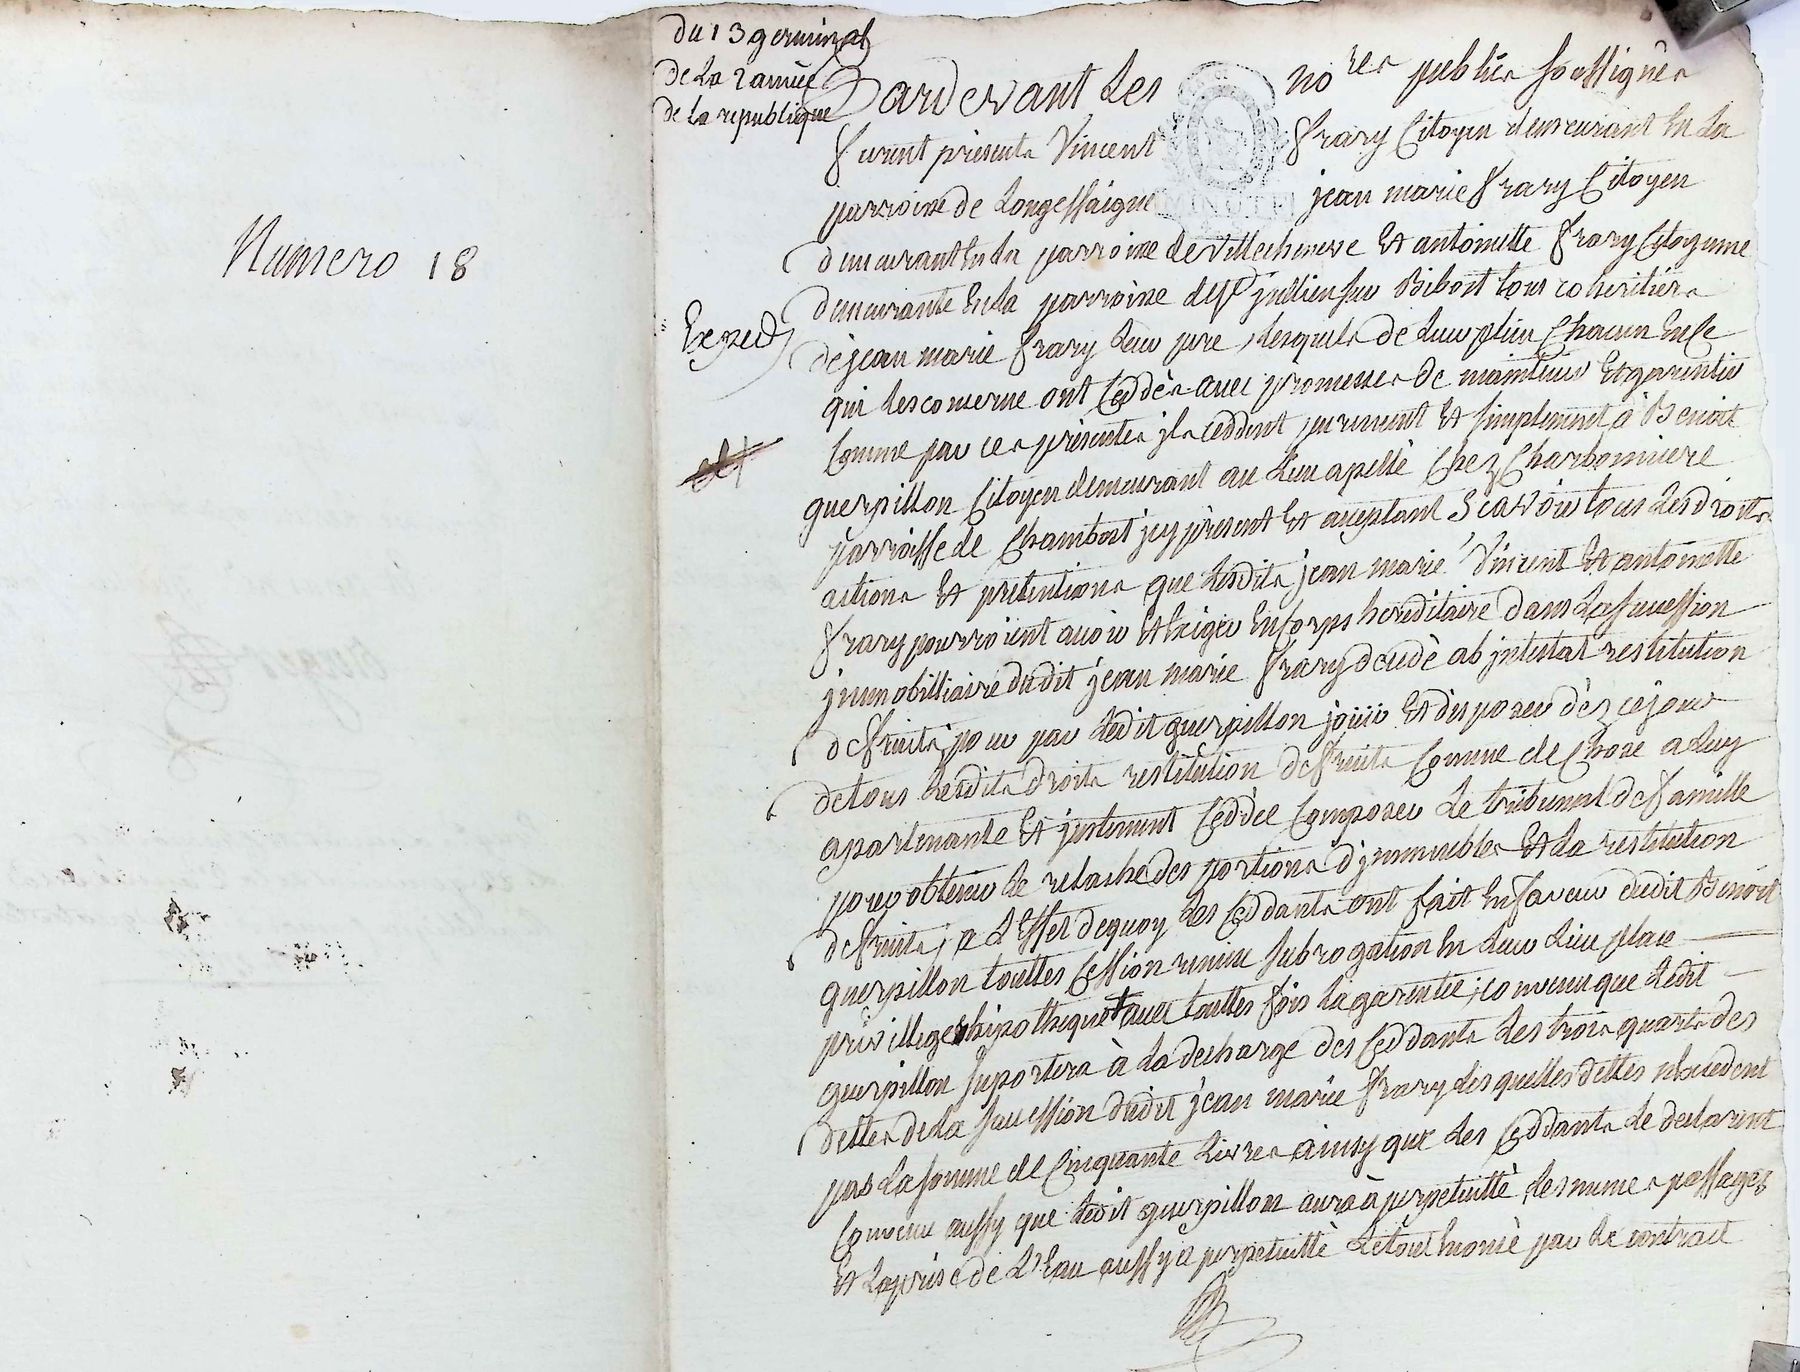 Numero 18
du 13 germinal
de La 2 année
de La republique
Expéd
Pardevant Les nores publics soussignés
furent présents Vincent frary Citoyen demeurant En La
parroisse de Longessaigne jean marie frary Citoyen
demeurant En La parroisse de Villecheneve Et antoinette frary Citoyenne
demeurante En La parroisse de St jullien sur Bibost tous coheritiers
de jean marie frary Leur pere, Lesquels de Leur plein Chacun En Ce
qui Les concerne ont Ceddés avec promesse de maintenir Et garentir
Comme par ces présentes jls Ceddent purement Et simplement à Benoit
guerpillon Citoyen demeurant au Lieu apellé Chez Charbonniere
parroisse de Chambost jcy présent Et aceptant Scavoir tous Les droits
actions Et pretentions que Lesdits jean marie Vincent Et antoinette
frary pourroient avoir Et Exiger En Corps hereditaire dans La succession
jmmobilliaire dudit jean marie frary décédé ab jntestat restitution
de fruits, pour par Ledit guerpillon joüir Et disposer dèz ce jour
de tous Lesdits droits restitution de fruits Comme de Chose a Luy
apartenante Et justement Ceddée Composer Le tribunal de famille
pour obtenir Le relache des portions d'jmmeubles Et La restitution
de fruits, a L'Effet de quoy Les Ceddants ont fait En faveur dudit Benoit
guerpillon touttes Cession remise subrogation En Leur Lieu place
privillege hipotheque avec touttes fois La garentie, convenu que Ledit
guerpillon suportera à La decharge des Ceddants Les trois quarts des
dettes de La succession dudit jean marie frary Les quelles dettes n'Excedent
pas La somme de Cinquante Livres ainsy que Les Ceddants Le declarent
Convenu aussy que Ledit guerpillon aura à perpetuitté Les memes passages
Et La prise de L'Eau aussy a perpetuitté Le tout Enoncé par Le contract